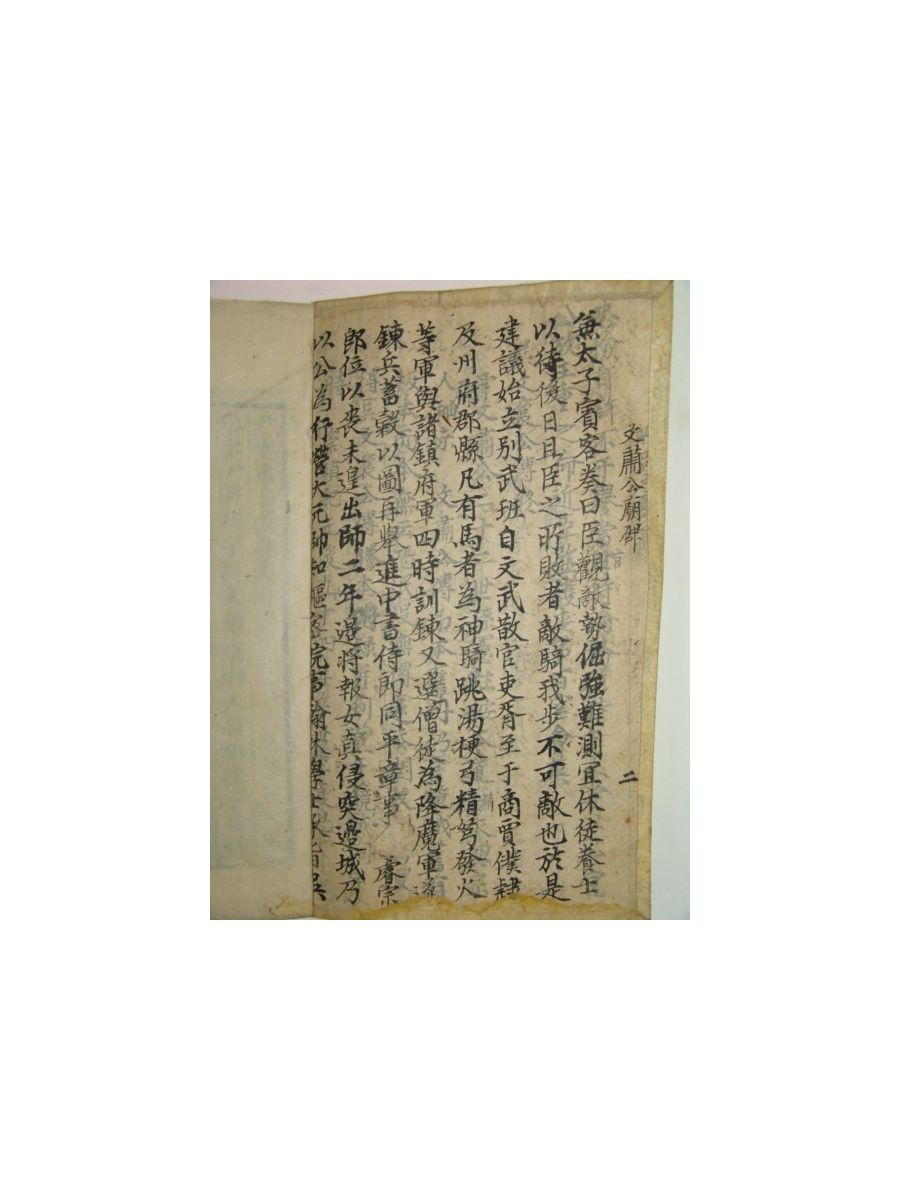 文肅公廟碑
二
兼太子賓客奏曰臣觀敵勢倔強難測冝休徒養士
以待後日且臣之所敗者敵騎我步不可敵也於是
建議始立別武班自文武散官吏胥至于商賈僕隷
及州府郡縣凡有馬者為神騎跳湯梗弓精弩發火
等軍與諸鎮府軍四時訓鍊又選僧徒為降魔軍遂
鍊兵蓄穀以圖再舉進中書侍郎同平章事 睿宗
郎位以喪未遑出師二年邉將報女真侵突邉城乃
以公為行營大元帥知樞密院事翰林學士承旨吳